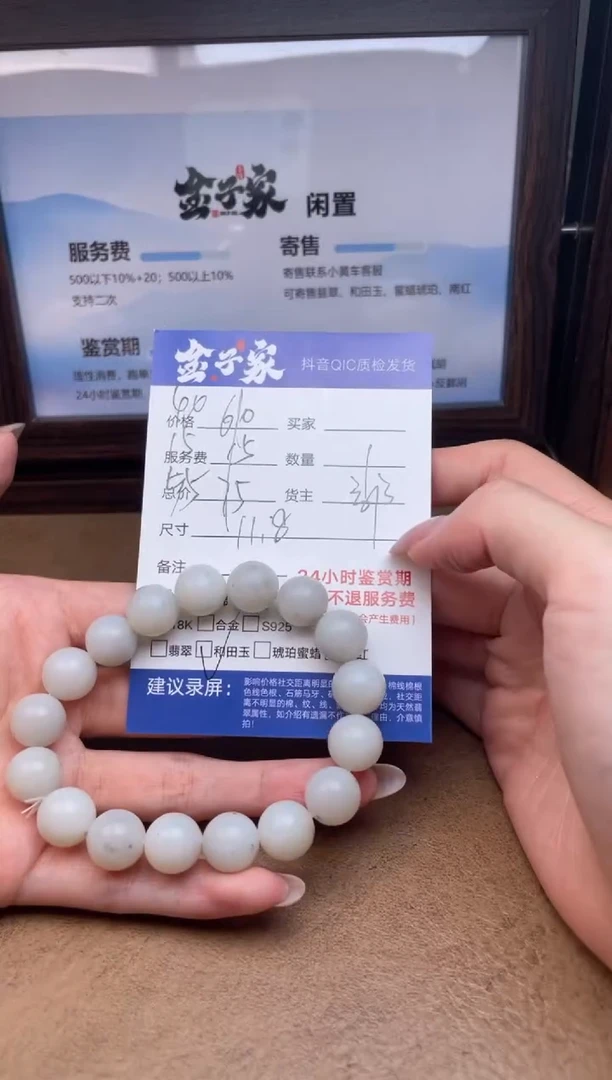 金子家 闲置
服务费
寄售
500以下10%+20；500以上10%
寄售联系小黄车客服
支持二次
可寄售翡翠、和田玉、蜜蜡琥珀、南红
鉴赏期
理性消费，
24小时鉴赏期
金子家 抖音QIC质检发货
60
价格 60 买家
15
服务费 15 数量 1
总价 75 货主
尺寸 11.8
备注
24小时鉴赏期
不退服务费
会产生费用]
18K 合金 S925
翡翠 和田玉 琥珀蜜蜡 红
建议录屏：
影响价格社交距离明显的 棉线棉根
色线色根、石筋马牙、 社交距
离不明显的棉，纹，线， 均为天然翡
翠属性，如介绍有遗漏不作 理由，介意慎
拍！